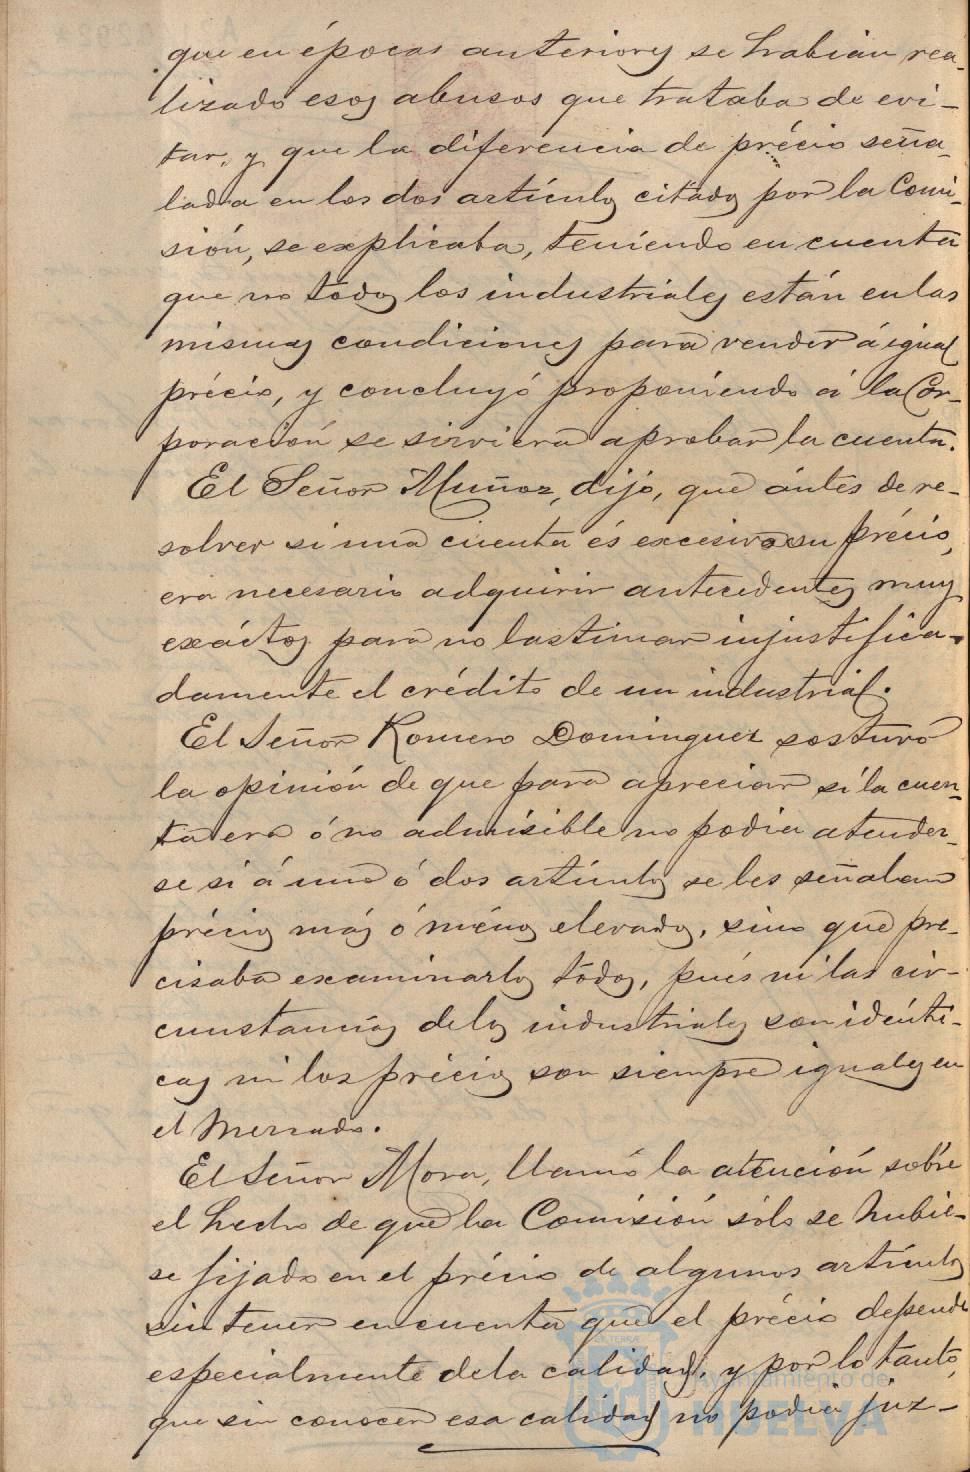 que en épocas anteriores se habian rea-
lizado esos abusos que trataba de evi-
tar, y que la diferencia de précio seña-
lada en los dos artículos citados por la Comi-
sión, se explicaba, teniendo en cuenta
que no todos los industriales están en las
mismas condiciones para vender á igual
précio, y concluyó proponiendo á la Cor-
poración se sirviera aprobar la cuenta.
El Señor Muñoz, dijo, que ántes de re-
solver si una cuenta és excesivo su précio,
era necesario adquirir antecedentes muy
exáctos para no lastimar injustifica-
damente el crédito de un industrial.
El Señor Romero Dominguez sostuvo
la opinión de que para apreciar si la cuen-
ta era ó no admisible no podia atender-
se si á uno ó dos artículos se les señalan
précios más ó ménos elevados, sino que pre-
cisaba examinarlos todos, pués ni las cir-
cunstancias de los industriales son idénti-
cas ni los précios son siempre iguales en
el Mercado.
El Señor Mora, llamó la atención sobre
el hecho de que la Comisión sólo se hubie-
se fijado en el précio de algunos artículos
sin tener en cuenta que el précio depende
especialmente de la calidad, y por lo tanto,
que sin conocer esa calidad no podia juz-
Ayuntamiento de
HUELVA